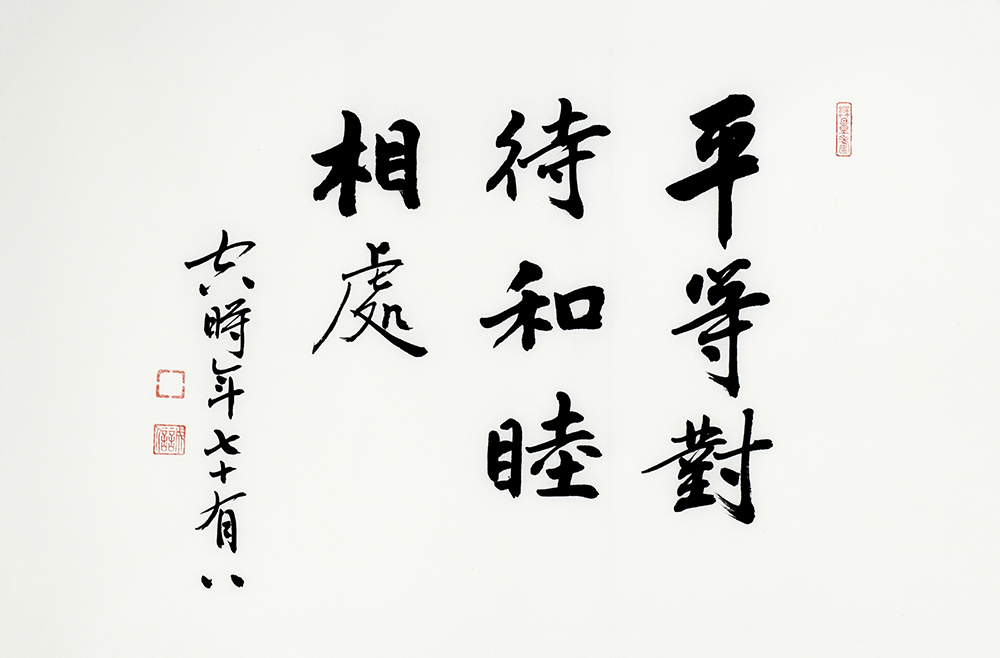 平等對
待和睦
相處
時年七十有八